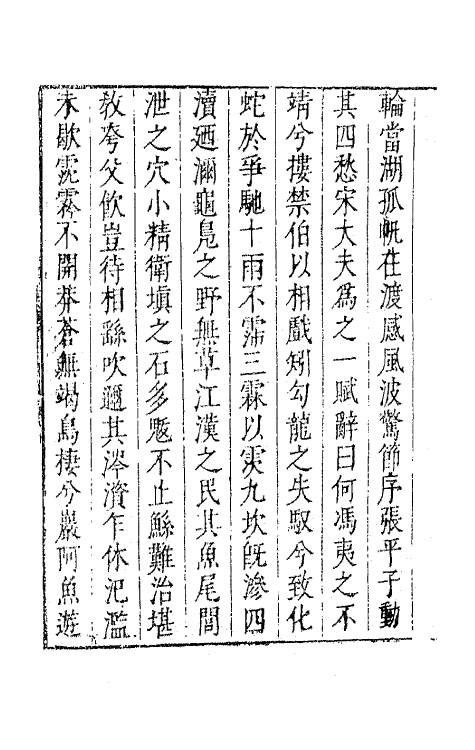 輪當湖孤帆在渡感風波驚節序張平子動
其四愁宋大夫爲之一賦辭曰何馮夷之不
靖兮摟禁伯以相戲矧勾龍之失馭兮致化
蛇於爭馳十雨不需三霖以霙九坎旣滲四
瀆廼瀰龜鳬之野無草江漢之民其魚尾閭
泄之穴小精衛塡之石多䰡不止鯀難治堪
敎夸父飲豈待相繇吹邇其涔濱乍休汜濫
未歇霃霧不開莽蒼無竭鳥棲兮巖阿魚遊